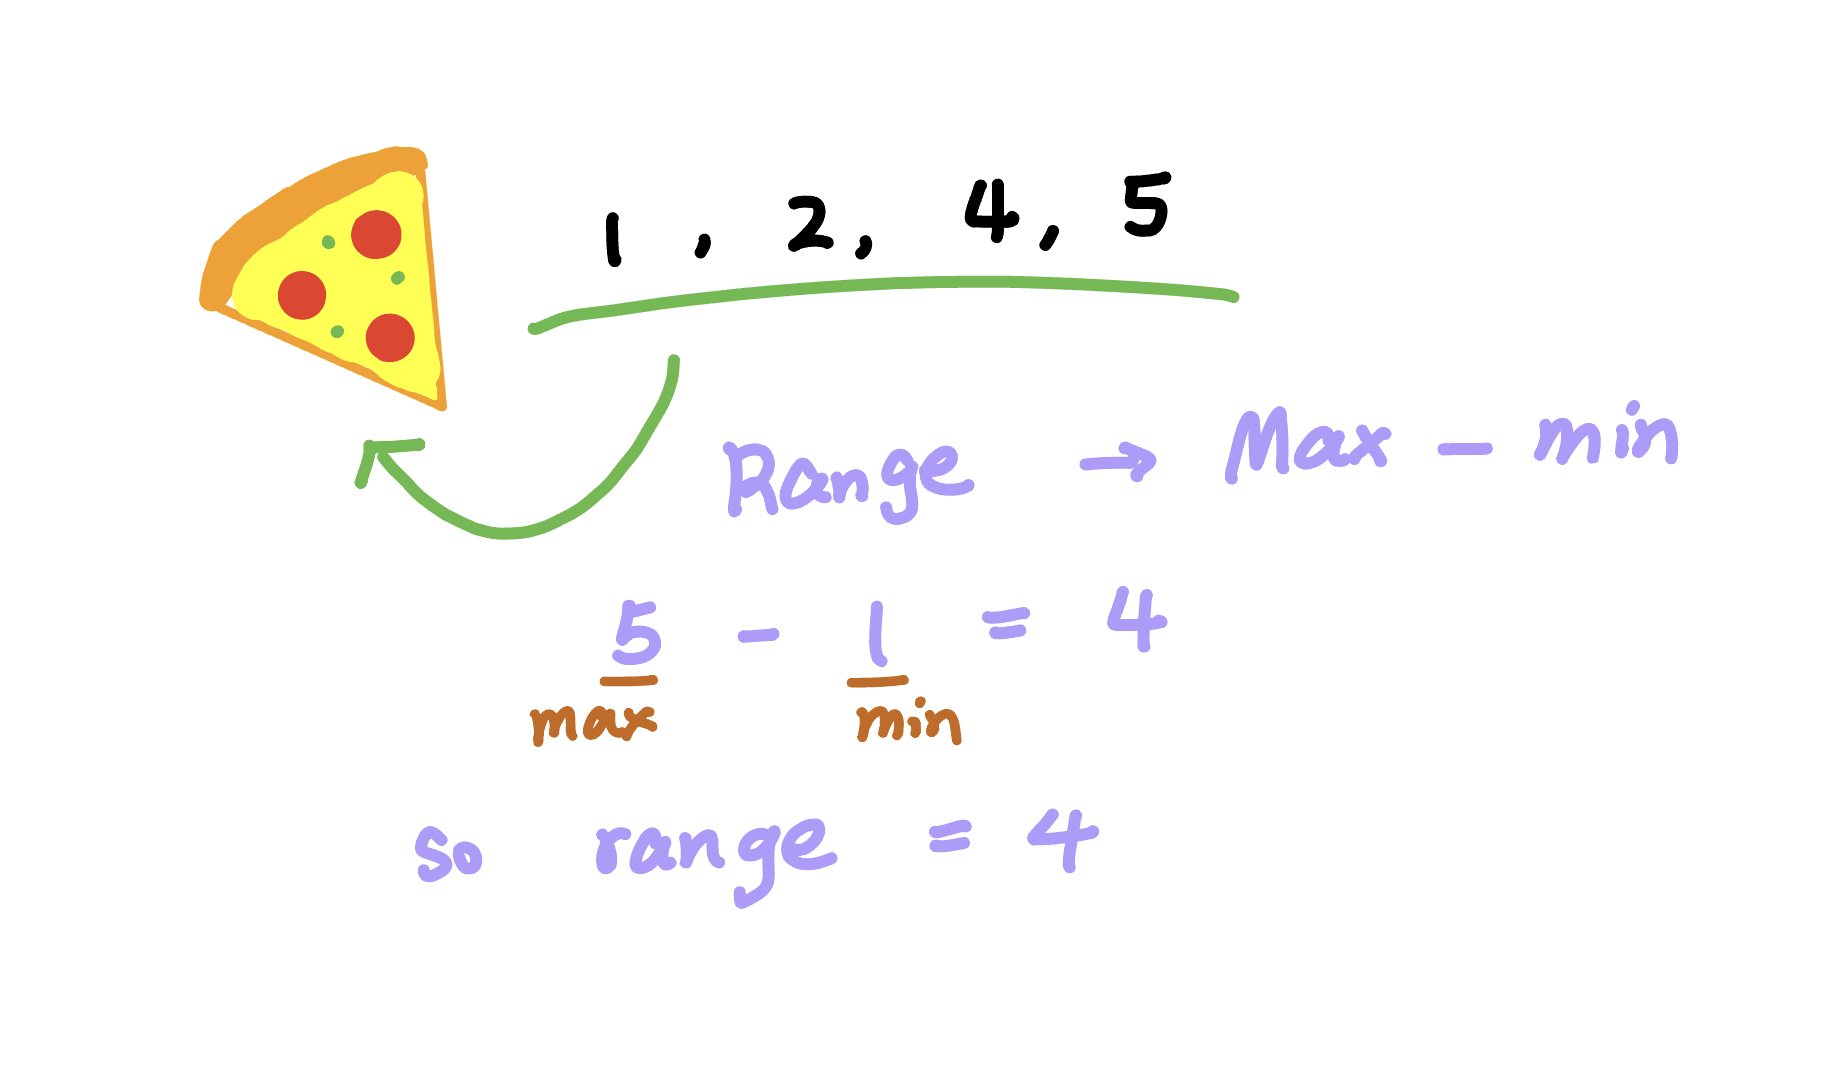 1, 2, 4, 5
Range → Max - min
5 - 1 = 4
max min
so range = 4